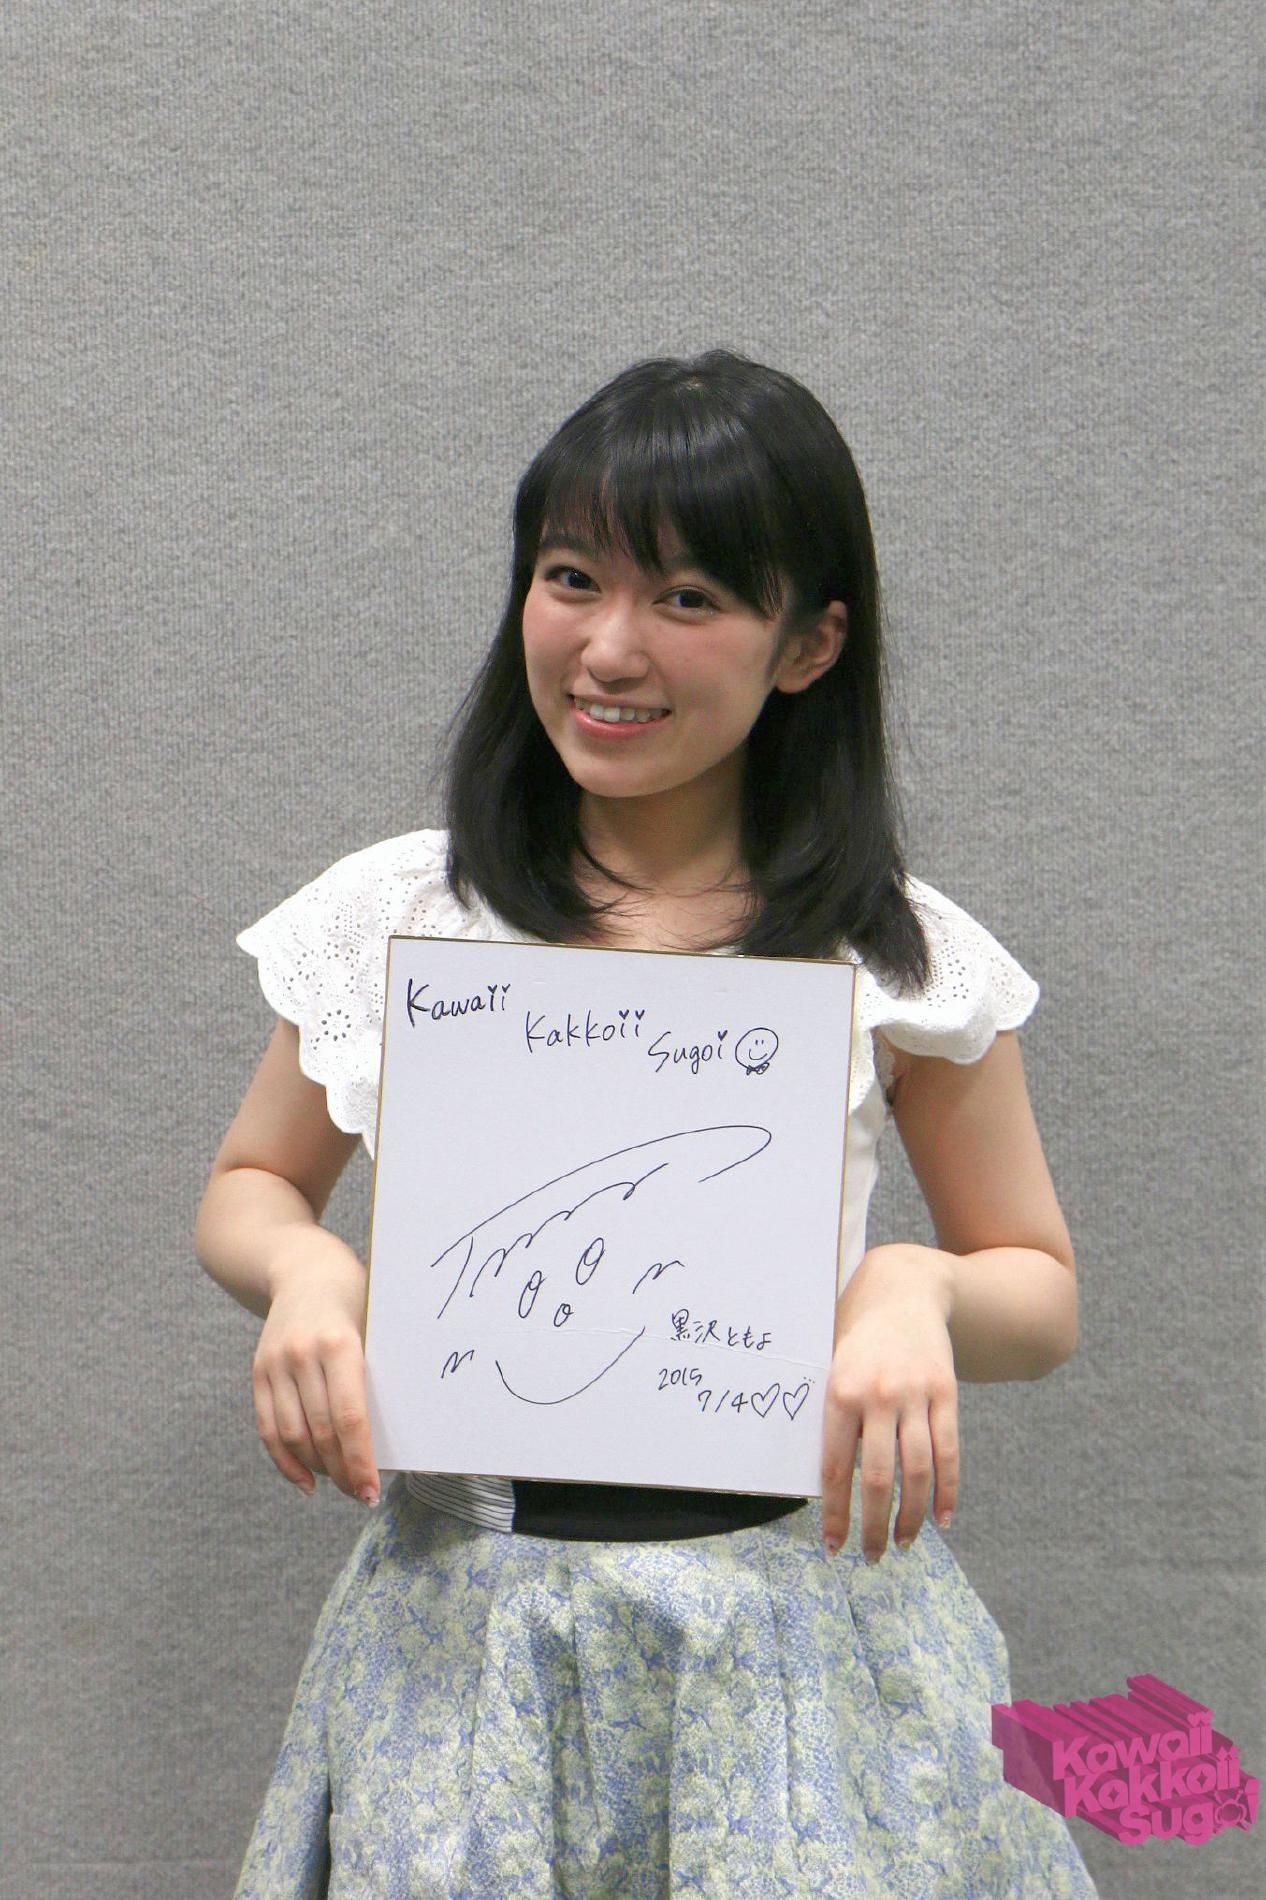 Kawaii
Kakkoii
Sugoi
黒沢ともよ
2015
7/4♡♡
Kawaii
Kakkoii
Sugoi